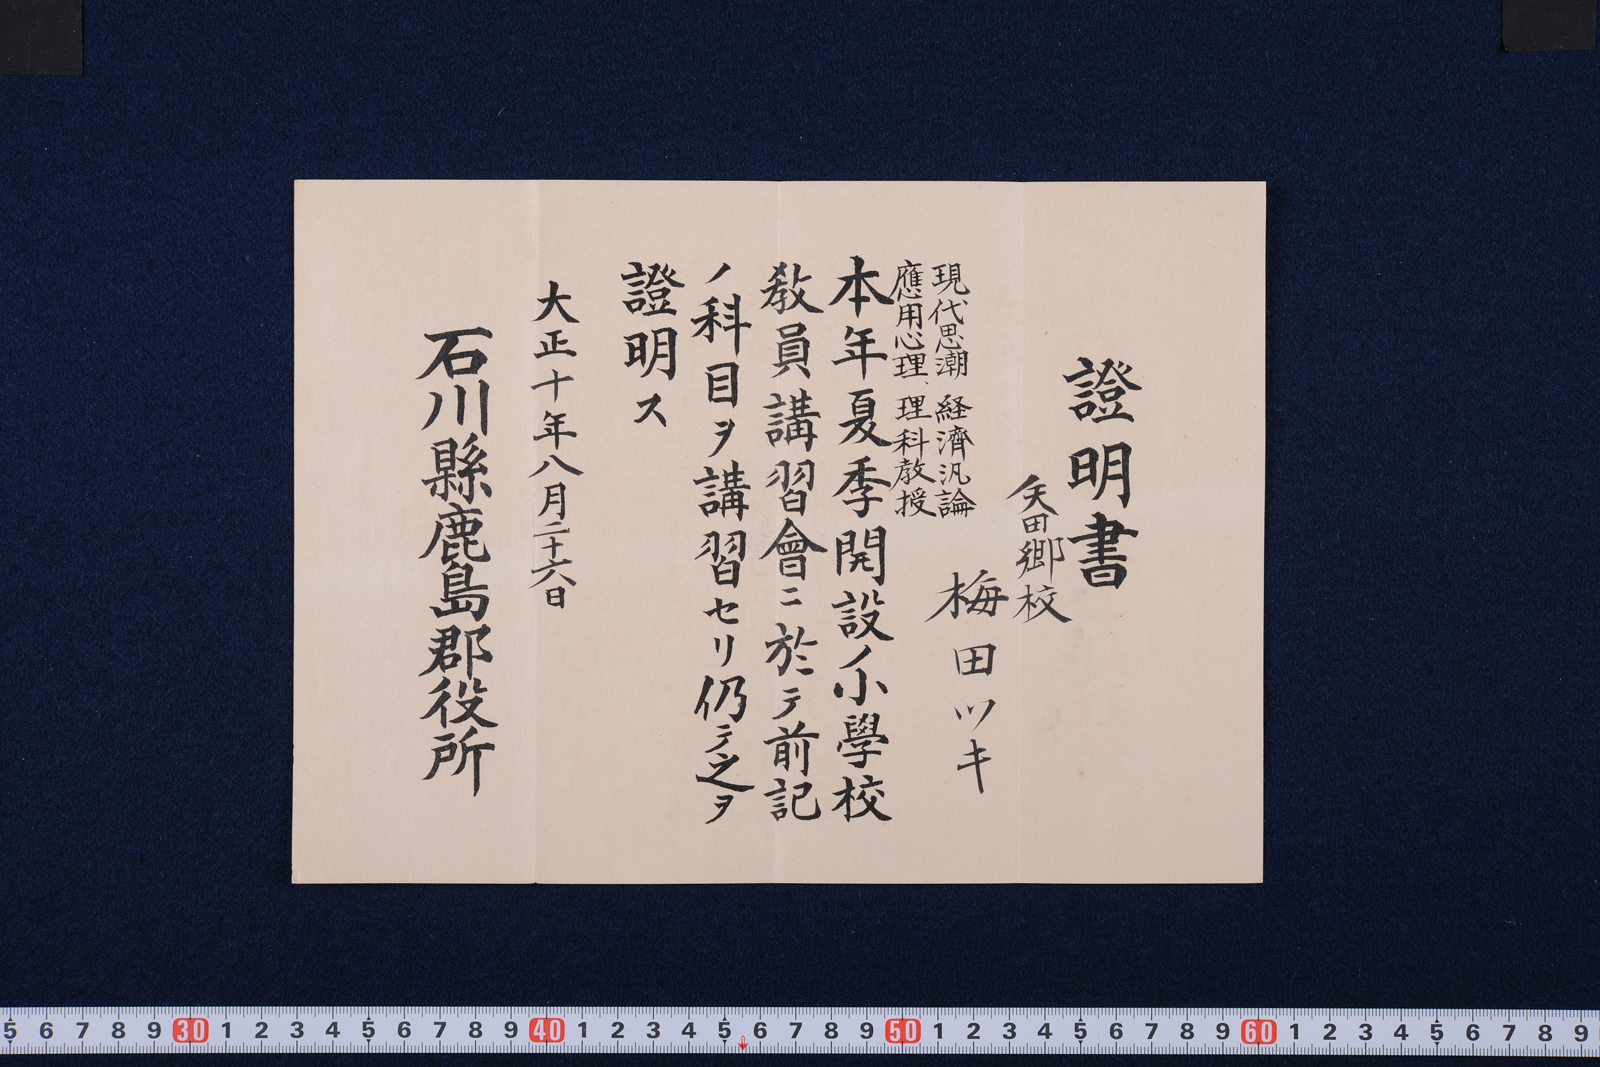 證明書
矢田郷校
梅田ツキ
現代思潮 経済汎論
應用心理、理科教授
本年夏季開設ノ小學校
教員講習會ニ於テ前記
ノ科目ヲ講習セリ仍テ之ヲ
證明ス
大正十年八月二十六日
石川縣鹿島郡役所
5 6 7 8 9 30 1 2 3 4 5 6 7 8 9 40 1 2 3 4 5 6 7 8 9 50 1 2 3 4 5 6 7 8 9 60 1 2 3 4 5 6 7 8 9